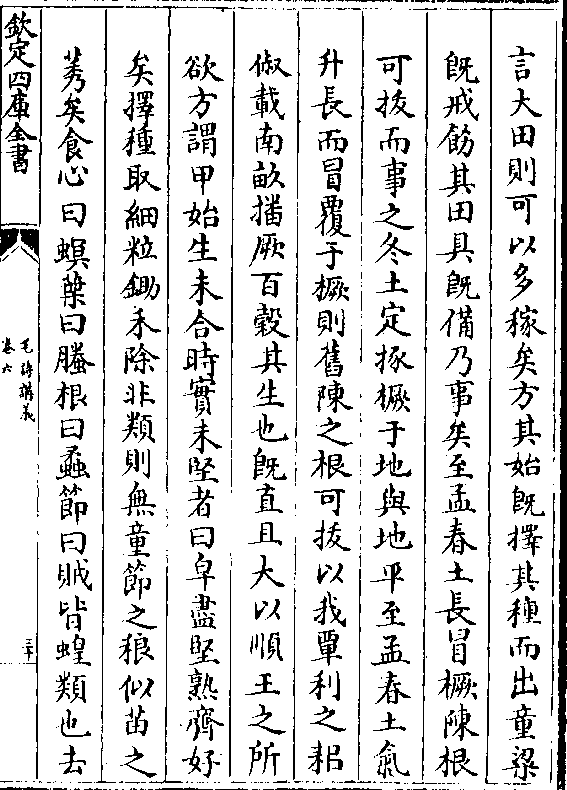 言大田則可以多稼矣方其始既擇其種而出童梁
既戒飭其田具既備乃事矣至孟春土長冒橛陳根
可拔而事之冬土定捄橛于地與地平至孟春土氣
升長而冒覆于橛則舊陳之根可拔以我覃利之耜
俶載南畝播厥百穀其生也既直且大以順王之所
欲方謂甲始生未合時實未堅者曰皁盡堅熟齊好
矣擇種取細粒鋤禾除非類則無童節之稂似苗之
莠矣食心曰螟葉曰螣根曰蟊節曰賊皆蝗類也去
欽定四庫全書
毛詩講義
卷六
三十